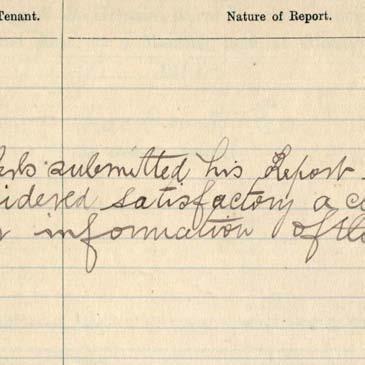 Tenant. Nature of Report.
submitted his Report
idered satisfactory a co
information of the